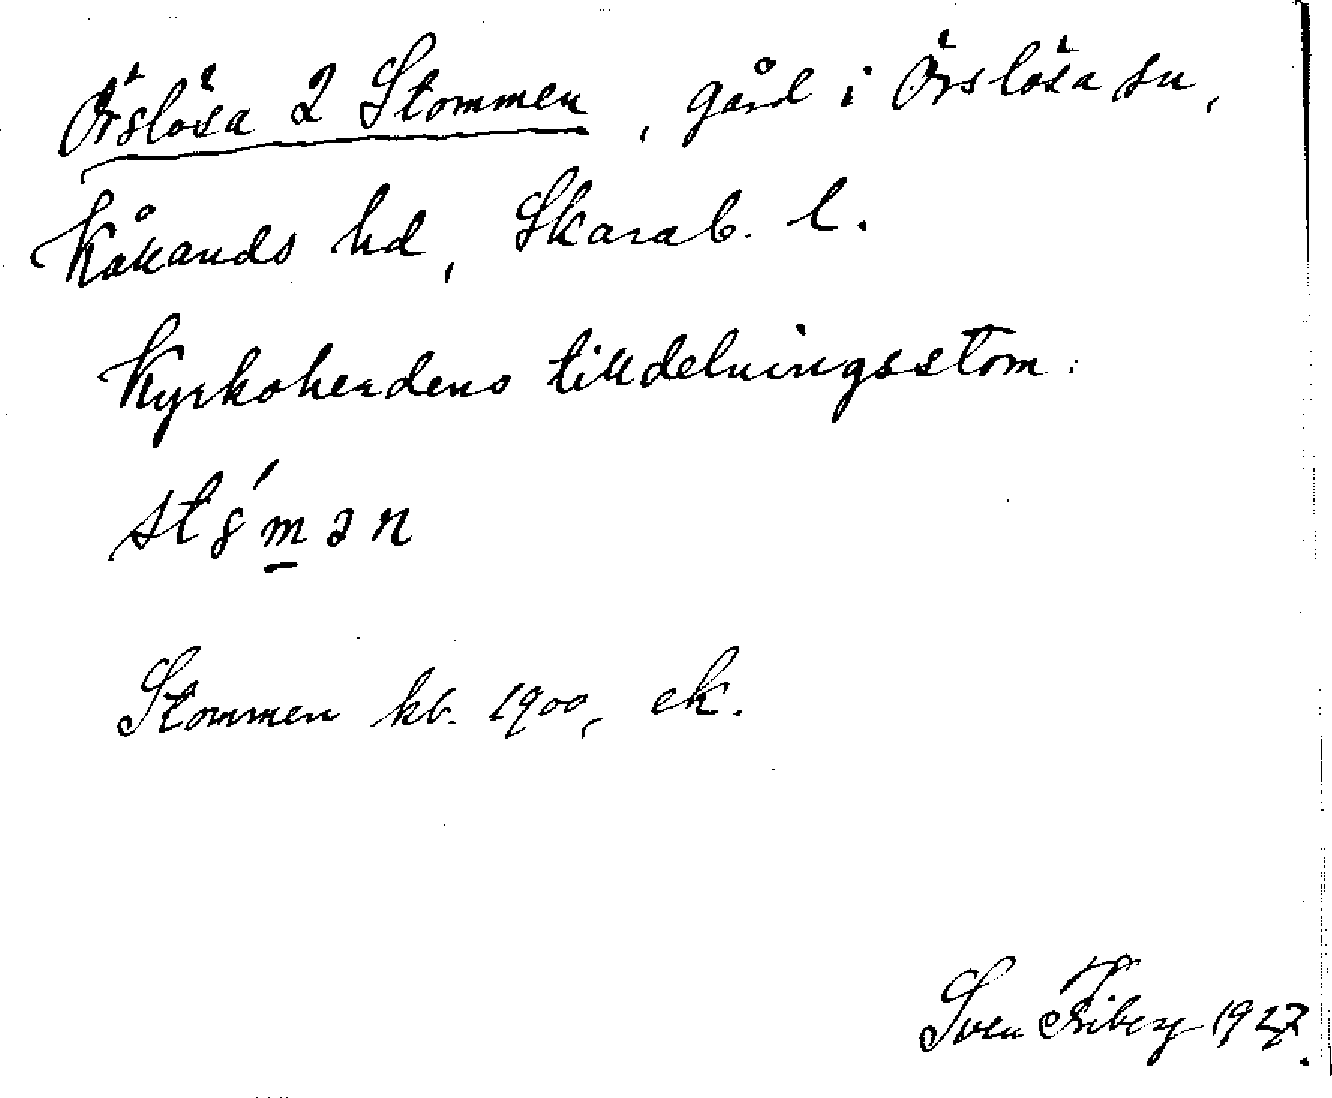 Örslösa 2 Stommen, gård i Örslösa sn,
Kållands hd, Skarab. l.
Kyrkoherdens tilldelningsstom.
st8́m̲ən
Stommen kb. 1900, ek.
Sven Friberg 1927.